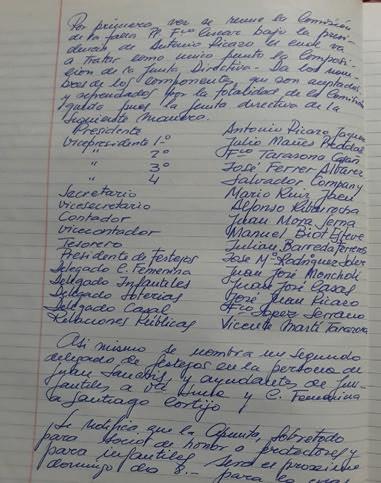 Por primera vez se reune la Comisión
de la falla P. Fco Cuear bajo la presi-
dencia de Antonio Picazo la cual va
a tratar como unico punto la composi-
ción de la Junta Directiva. Da los nom-
bres de los componentes, que son aceptados
y aprobados por la totalidad de la comisión
quedo pues la junta directiva de la
siguiente manera.
Presidente Antonio Picazo
Vicepresidente 1º Julio Mañes
" 2º Fco Tarasona
" 3º José Ferrer Alvarez
" 4 Salvador Company
Secretario Mario Ruiz Jaen
Vicesecretario Alfonso Ribarrocha
Contador Juan Mora Serna
Vicecontador Manuel Biot Esteve
Tesorero Julian Barreda
Presidente de festejos Jose Mª Rodriguez Soler
Delegado C. Femenina Juan José Mencheli
Delegado Infantiles Juan José Casas
Delegado Loterias José Juan Picazo
Delegado Casal Fco Lopez Serrano
Relaciones Públicas Vicente Martí Tarazona
Asi mismo se nombra un segundo
delegado de festejos en la persona de
Juan y ayudantes de In-
fantiles a y C. Femenina
a Santiago Cortijo
Se notifica que la Apunta, sobretodo
para social de honor o protectores y
para infantiles, será el proximo
domingo dia 8... para lo cual